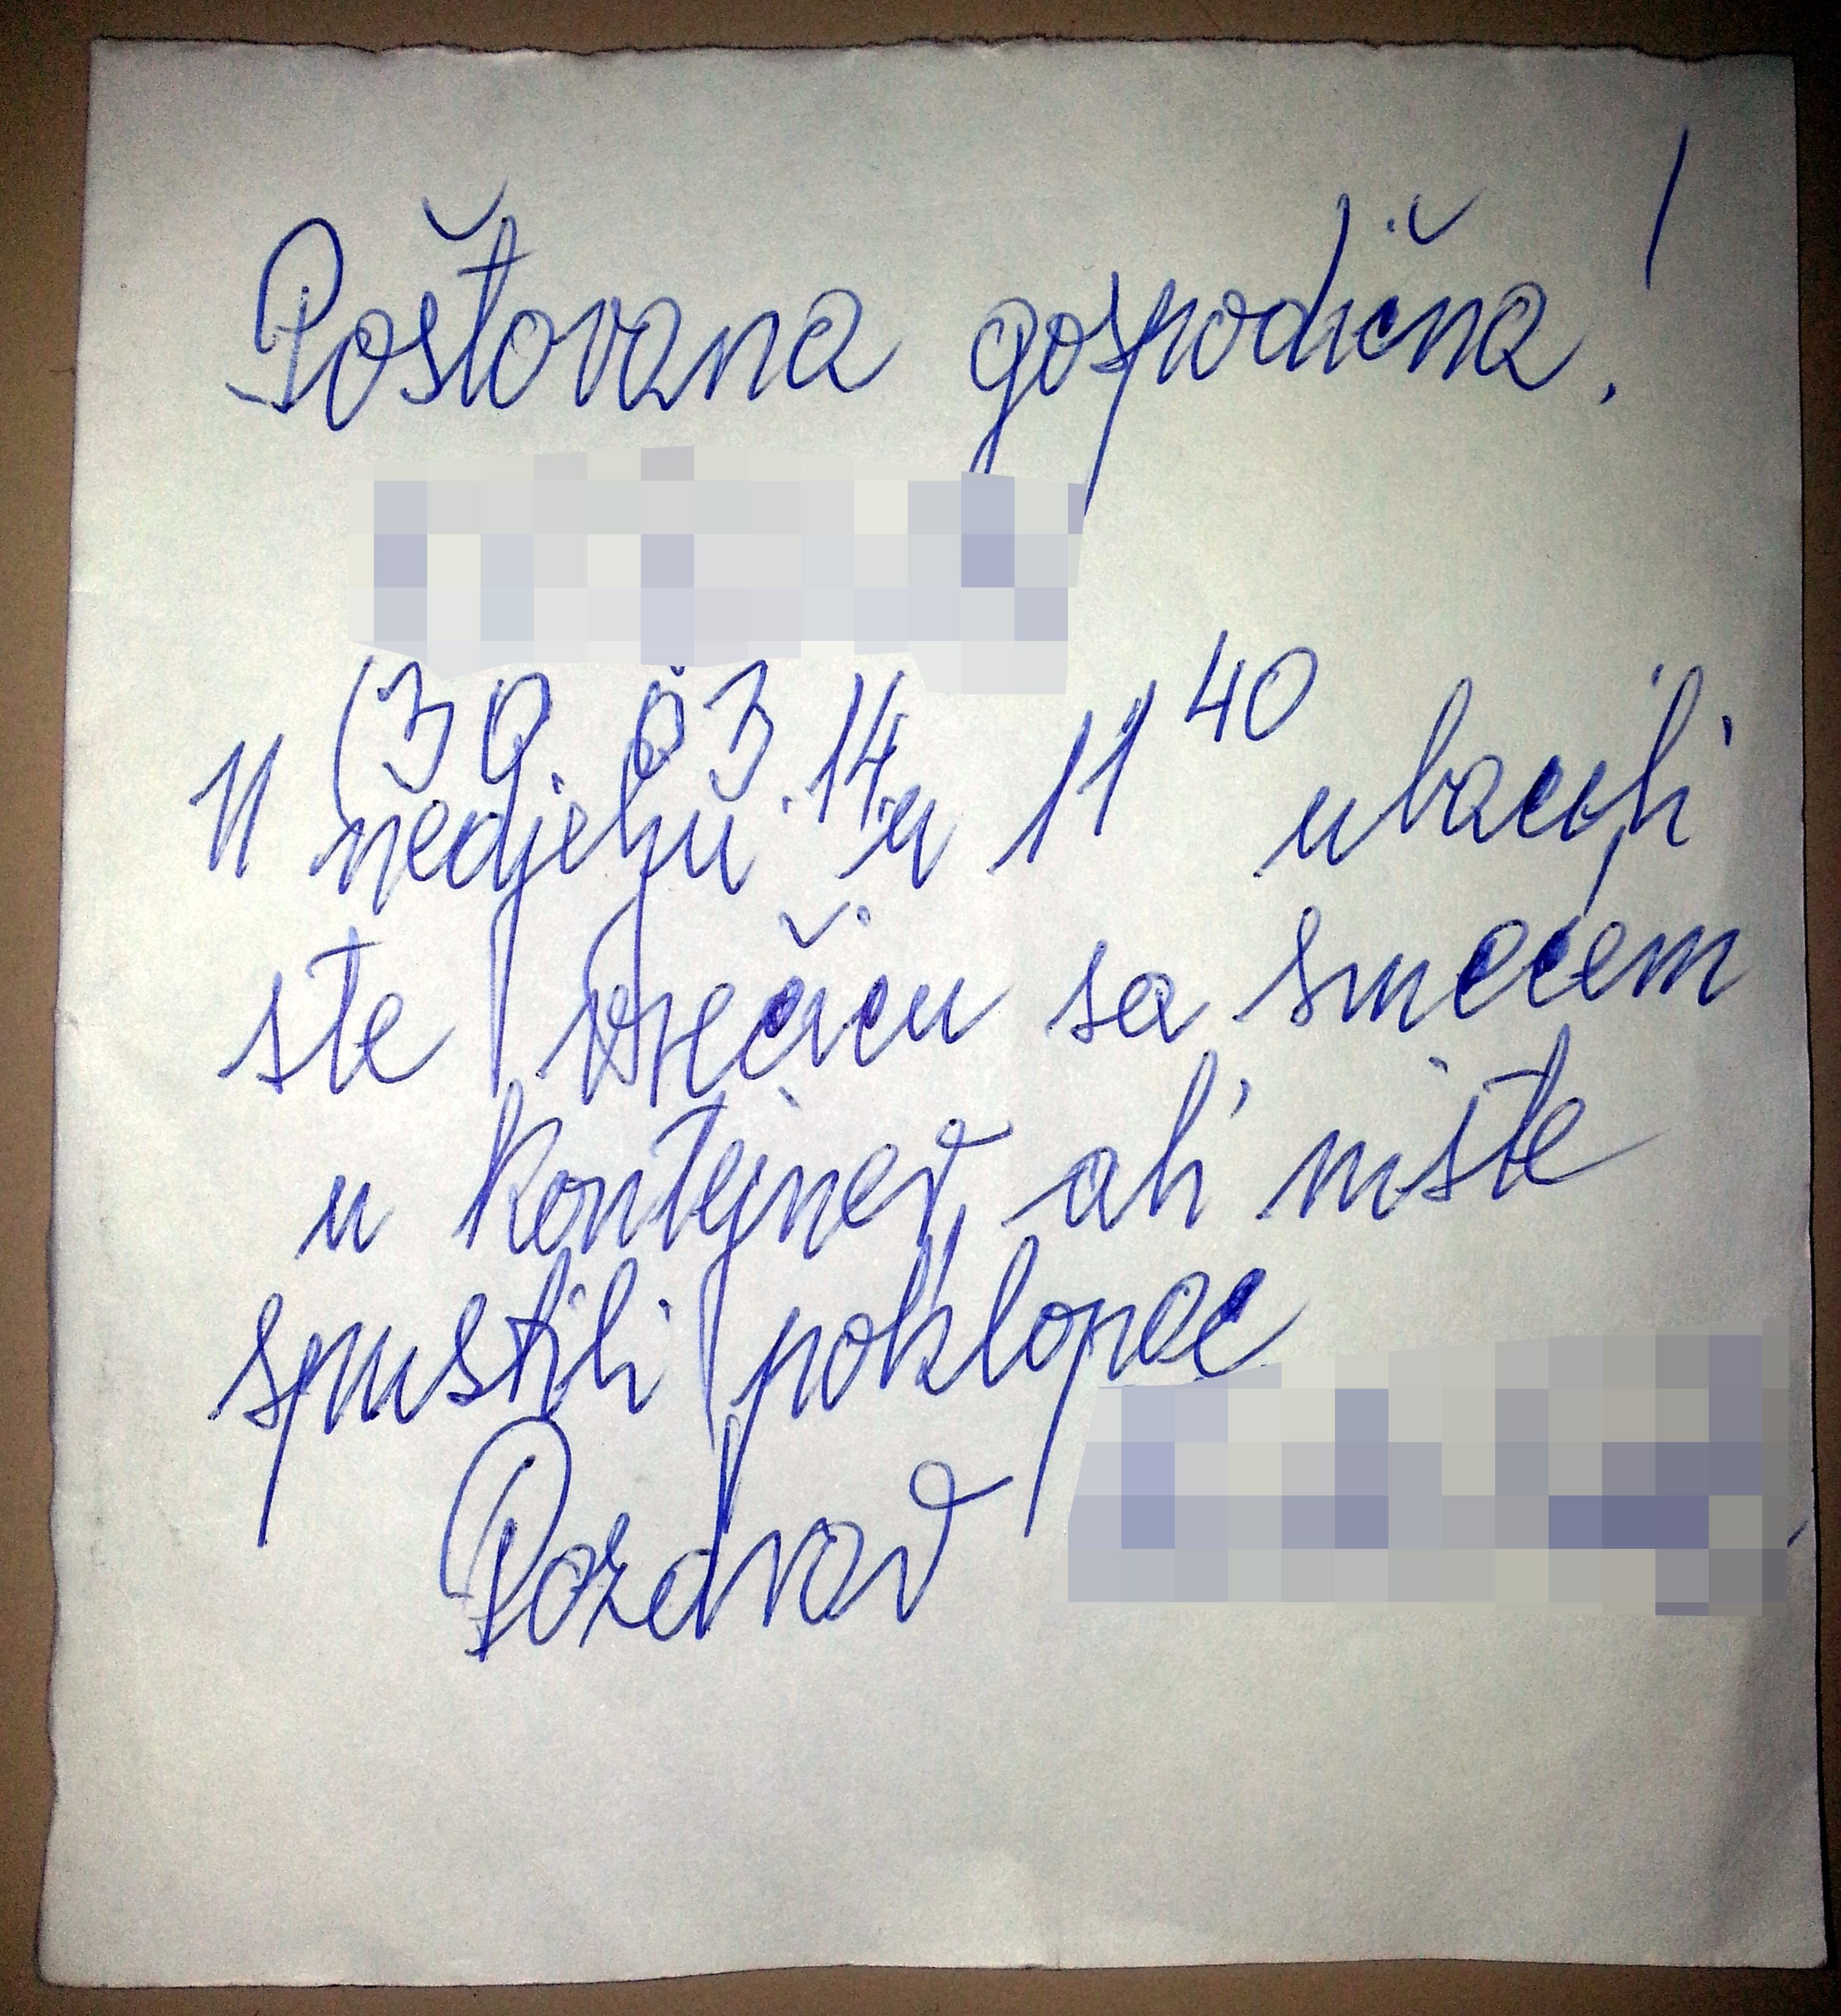 Poštovana gospodična!
(30. 03.14.
U nedjelju u 11 40 ubacili
ste vrećicu sa smećem
u kontejner, ali niste
spustili poklopac
Pozdrav